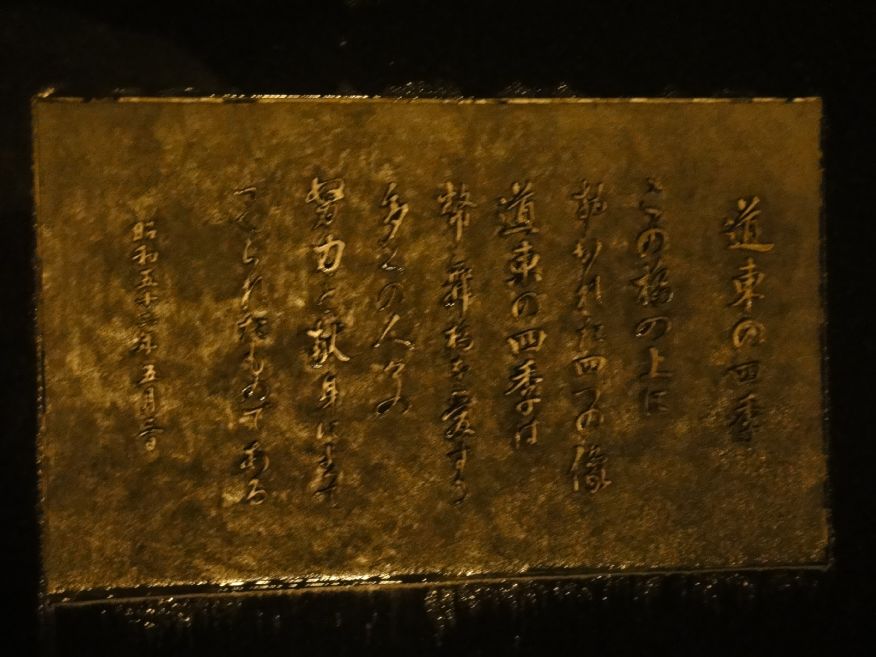 道東の四季
この橋の上に
四つの像
道東の四季は
幣舞橋を愛する
多くの人々の
努力と献身によって
つくられたものである
昭和五十二年五月三日